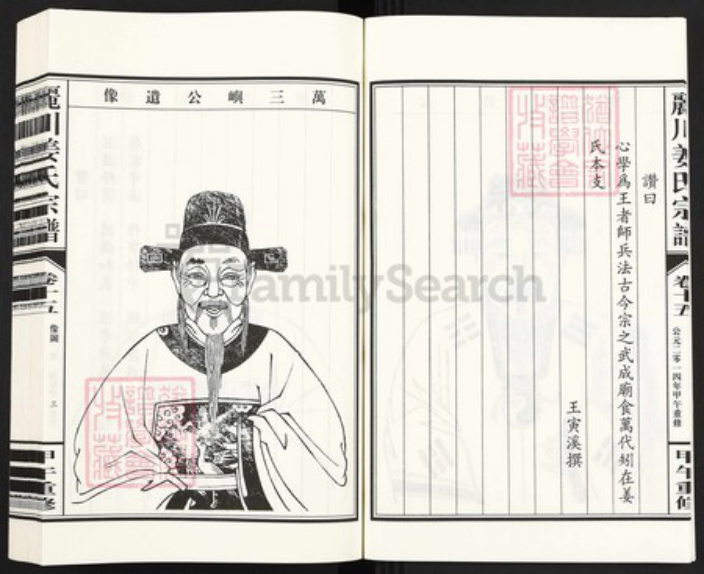 麗川姜氏宗譜
卷十五
公元二零一四年甲午重修
甲午重修
讚曰
心學爲王者師兵法古今宗之武成廟食萬代矧在姜
氏本支
王寅溪撰
萬三嶼公遺像
麗川姜氏宗譜
卷十五
像圖
三
甲午重修
FamilySearch